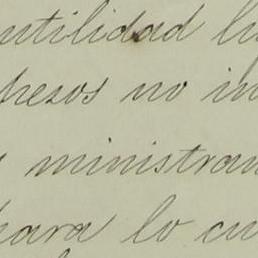 utilidad lu
pesos no in
s ministran
para lo cu